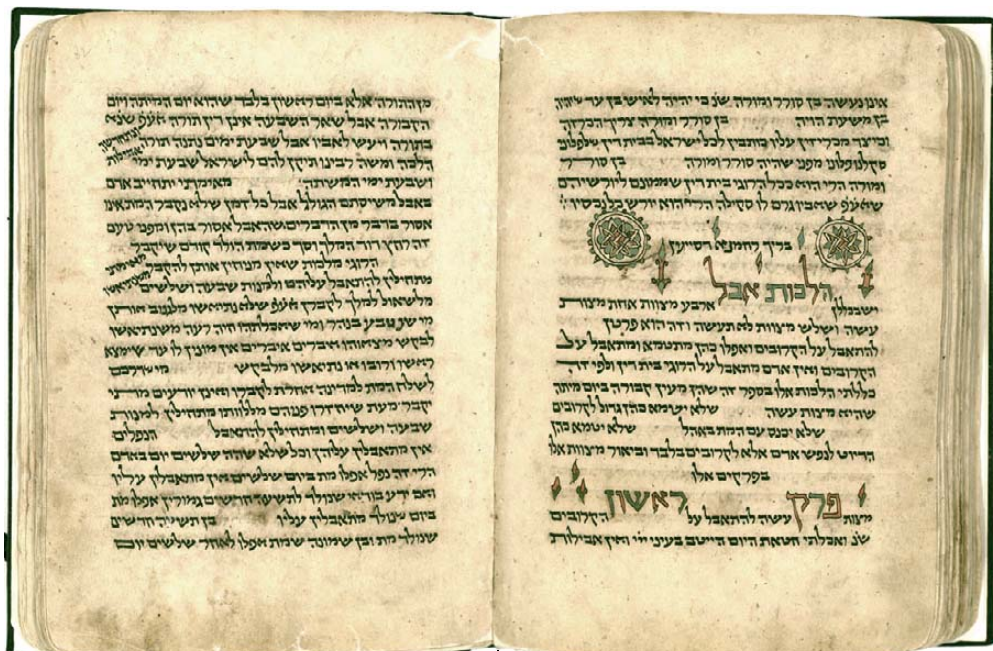 אינו נעשה בן סורר ומורה שנ׳ כי יהיה לאיש בן עד שיהיה
בן משעת הויה בן סורר ומורה צריך הכרזה
וכיצד מכריזין עליו כותבין לכל ישראל בבית דין שלפלוני
סקלנו פלוני מפני שהיה סורר ומורה בן סורר
ומורה הרי הוא ככל הרוגי בית דין שממונם ליורשיהם
שאעפ׳ שאביו גרם לו סקילה הרי הוא יורש כל נכסיו
בריך רחמנא דסייען
הלכות אבל
ישבכללן ארבע מצוות אחת מצות
עשה ושלש מצוות לא תעשה וזה הוא פרטן
להתאבל על הקרובים ואפלו כהן מתטמא ומתאבל על
הקרובים ואין אדם מתאבל על הרוגי בית דין ולפי זה
כללתי הלכות אלו בספר זה שהן מעין קבורה ביום מיתה
שהיא מצות עשה שלא יטמא כהן גדול לקרובים
שלא יכנס עם המת באהל שלא יטמא כהן
הדיוט לנפש אדם אלא לקרובים בלבד וביאור מצוות אלו
בפרקים אלו
פרק ראשון
מצות עשה להתאבל על הקרובים
שנ׳ ואכלתי חטאת היום הייטב בעיני יי׳ ואין אבילות
מן התורה אלא ביום ראשון בלבד שהוא יום המיתה ויום
הקבורה אבל שאר השבעה אינן דין תורה אעפ׳ שנא׳
בתורה ויעש לאביו אבל שבעת ימים נתנה תורה
הלכה ומשה רבינו תיקן להם לישראל שבעת ימי
ושבעת ימי המשתה מאימתי יתחייב אדם
באבל משיסתם הגולל אבל כל זמן שלא נקבר המת אינו
אסור בדבר מן הדברים שהאבל אסור בהן ומפני טעם
זה רחץ דוד המלך וסך כשמת הולד קודם שיקבר
הרוגי מלכות שאין מניחין אותן להקבר
מתחילין להתאבל עליהם ולמנות שבעה ושלשים
מלשאול למלך לקברן אעפ׳ שלא נתיאשו מלגנוב אותן
מי שנטבע בנהר ומי שאכלתהו חיה רעה משנתיאשו
לבקש מצאוהו איברים איברים אין מונין לו עד שימצא
ראשו ורובו או נתיאשו מלבקש מי שדרכם
לשלח המת למדינה אחרת לקברו ואינן יודעים מתי
יקבר מעת שיחזרו פניהם מללוותו מתחילין למנות
שבעה ושלשים ומתחילין להתאבל הנפלים
אין מתאבלין עליהן וכל שלא שהה שלשים יום באדם
הרי זה נפל אפלו מת ביום שלשים אין מתאבלין עליו
ואם ידע בודאי שנולד לתשעה חדשים גמורין אפלו מת
ביום שנולד מתאבלין עליו בן תשעה חדשים
שנולד מת ובן שמונה שמת אפלו לאחר שלשים יום